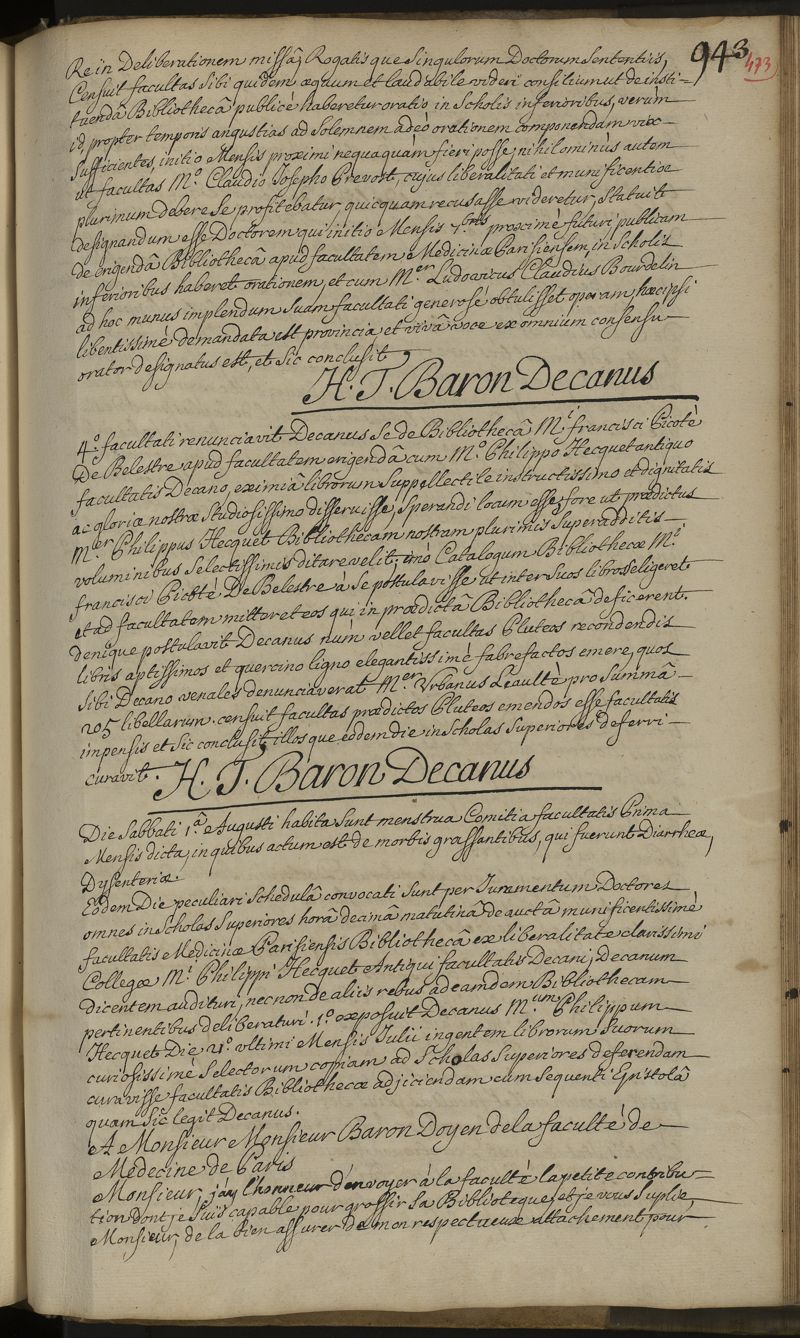 943
473
Re in Deliberationem missâ, Rogatisque Singulorum Doctorum Sententiis,
Censuit facultas Sibi quidem æquum et laudabile videri consilium ut de insti=
tuendâ Bibliothecâ publice haberetur oratio in Scholis inferioribus, verùm
id propter temporis angustias ad Solemnem adeò orationem componendam vix
Sufficientes, initio Mensis proximi nequaquàm fieri posse, nihilominùs autem
ne facultas M.º Claudio Josepho Prevost, cujus liberalitati et munificentiæ
plurimum debere Se profitebatur quicquam recusasse videretur, Statuit
designandum esse Doctorem qui initio Mensis 7.bris proximè futuri publicam
de erigendâ Bibliothecâ apud facultatem Medicinæ Parisiensem, in Scholis
inferioribus haberet orationem, et cum M.er Ludovicus Claudius Bourdelin
ad hoc munus implendum Suam facultati generosè obtulisset operam, hæc ipsi
libentissimè demandata est provincia et vivâ voce ex omnium consensu
orator designatus est, et Sic conclusit
H. T. Baron Decanus
4.º facultati renunciavit Decanus Se de Bibliothecâ M.i francisci Picotè
De Belestre apud facultatem erigendâ cum M.º Philippo Hecquet antiquo
facultatis Decano, eximiâ librorum Suppellectile instructissimo et dignitatis
ac gloriæ nostræ Studiosissimo disseruisse, Sperandi locum esse, fore ut prædictus
M.er Philippus Hecquet Bibliothecam nostram plurimis Superadditis
voluminibus Selectissimis ditare velit, imò Catalogum Bibliothecæ M.i
francisci Picoté De Belestre à Se postulavisse ut inter Suos libros Seligeret
et ad facultatem mitteret eos qui in prædictâ Bibliothecâ deficerent.
denique postulavit Decanus nùm vellet facultas Pluteos recondendis
libris aptissimos et quercino ligno elegantissimè fabrefactos emere, quos
Sibi Decano venales denunciaverat M.er Vrbanus Leaultè pro Summâ
205 libellarum. censuit facultas prædictos Pluteos emendos esse facultatis
impensis et Sic conclusit, illosque eodem die in Scholas Superiores deferri
curavit. H. T. Baron Decanus
Die Sabbati 1.â Augusti habita Sunt menstrua Comitia facultatis Prima
Mensis dicta, in quibus actum est de morbis grassantibus, qui fuerunt Diarrheæ,
Dysenteriæ.
Eodem Die peculiari Schedulâ convocati Sunt per Juramentum Doctores
omnes in Scholas Superiores horâ decimâ matutinâ de auctâ munificentissimè
facultatis Medicinæ Parisiensis Bibliothecâ ex liberalitate clarissimi
Collegæ M.i Philippi Hecquet Antiqui facultatis Decani, Decanum
dicentem audituri, necnon de aliis rebus ad eamdem Bibliothecam
pertinentibus deliberaturi. 1.º exposuit Decanus M.um Philippum
Hecquet Die 21.º vltimi Mensis Julii ingentem librorum Suorum
curiosissimè Selectorum copiam ad Scholas Superiores deferendam
curavisse facultatis Bibliothecæ adjiciendam cum Sequenti Epistolâ
quam Sic legit Decanus.
A Monsieur Monsieur Baron Doyen de la faculté de
Médecine de Paris
Monsieur, j'ay l'honneur d'envoyer à la faculté la petite contribu=
tion dont je Suis capable pour grossir Sa Biblioteque, et je vous Suplie,
Monsieur, de la bien assurer de mon respectueux attachement pour